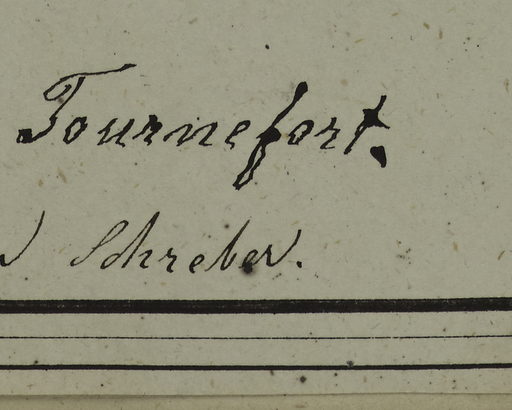 Tournefort.
Schreber.